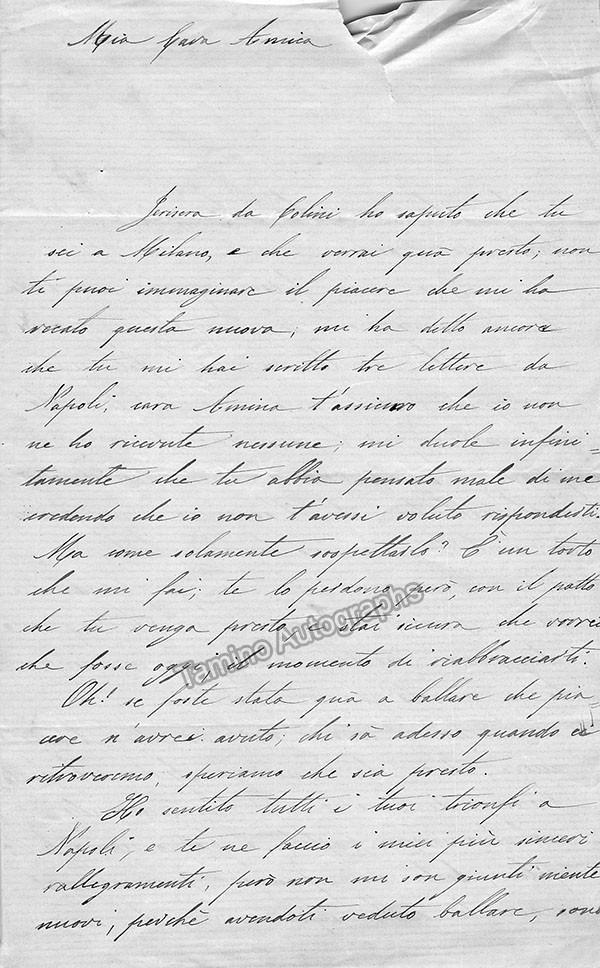 Mia Cara Amica
Jerisera da Colini ho saputo che tu
sei a Milano, e che verrai quà presto; non
ti puoi immaginare il piacere che mi ha
recato questa nuova; mi ha detto ancora
che tu mi hai scritto tre lettere da
Napoli, cara Amina t'assicuro che io non
ne ho ricevute nessune; mi duole infini=
tamente che tu abbia pensato male di me
credendo che io non t'avessi voluto risponderti.
Ma come solamente sospettarlo? È un torto
che mi fai; te lo perdono però, con il patto
che tu venga presto, e stai sicura che vorrei
che fosse oggi il momento di riabbracciarti.
Oh! se foste stata quà a ballare che pia=
cere n'avrei avuto; chi sà adesso quando ci
ritroveremo, speriamo che sia presto.
Ho sentito tutti i tuoi trionfi a
Napoli, e te ne faccio i miei più sinceri
rallegramenti, però non mi son giunti niente
nuovi, perchè avendoti veduto ballare, sono
Tamino Autographs